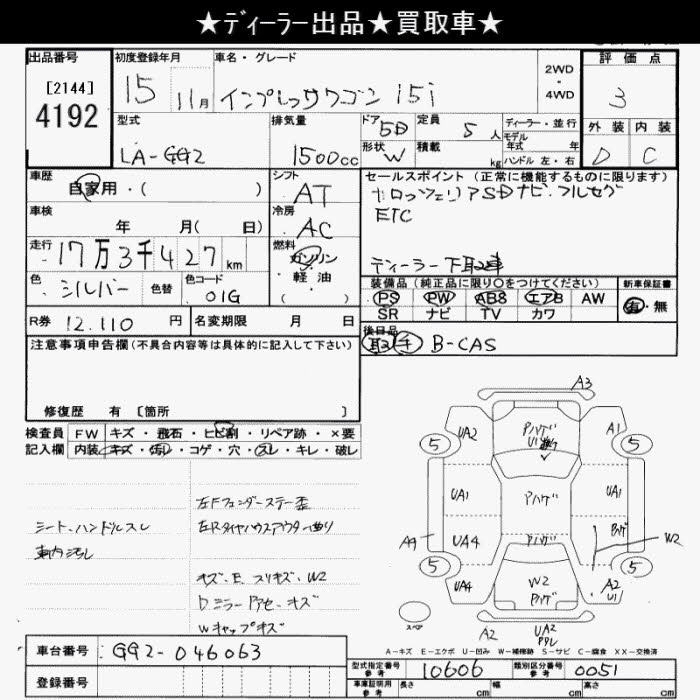 ★ディーラー出品★買取車★
出品番号
[2144]
4192
初度登録年月
15 11月
車名・グレード
インプレッサワゴン 15i
2WD
・
4WD
評価点
3
外装 内装
D C
型式
LA-GG2
排気量
1500cc
ドア 5D
形状 W
定員 5人
積載 kg
ディーラー・並行
モデル
年式 年
ハンドル 左・右
車歴
自家用・( )
シフト
AT
車検
年 月( 日)
冷房
AC
走行
17万3千427km
燃料
ガソリン
・
軽油
色 シルバー
色替
色コード
01G
R券 12.110 円
名変期限 月 日
セールスポイント (正常に機能するものに限ります)
カロッツェリアSDナビ・フルセグ
ETC
ディーラー下取車
装備品 (純正品に限り○をつけてください)
PS PW ABS エアB AW
SR ナビ TV カワ
新車保証書
有・無
後日品
取 手 B-CAS
注意事項申告欄(不具合内容等は具体的に記入して下さい)
修復歴 有 [箇所 ]
検査員
記入欄
FW キズ・飛石・ヒビ割・リペア跡・×要
内装 キズ・汚れ・コゲ・穴・スレ・キレ・破レ
シート、ハンドルスレ
車内汚レ
左Fフェンダーステー歪
左Rタイヤハウスアウター曲り
キズ、E スリキズ、W2
Dミラー アセ、キズ
Wキャップキズ
A3
UA2
A1
5
5
UA1
UA1
A9
UA4
W2
5
5
UA4
W2
A2
U1
スペア
A2
UA2
A-キズ E-エクボ U-凹み W-補修跡 S-サビ C-腐食 XX-交換済
車台番号 GG2-046063
登録番号
型式指定番号
参考
10606
類別区分番号
参考
0051
車庫証明用
参考
長さ cm
幅 cm
高さ cm